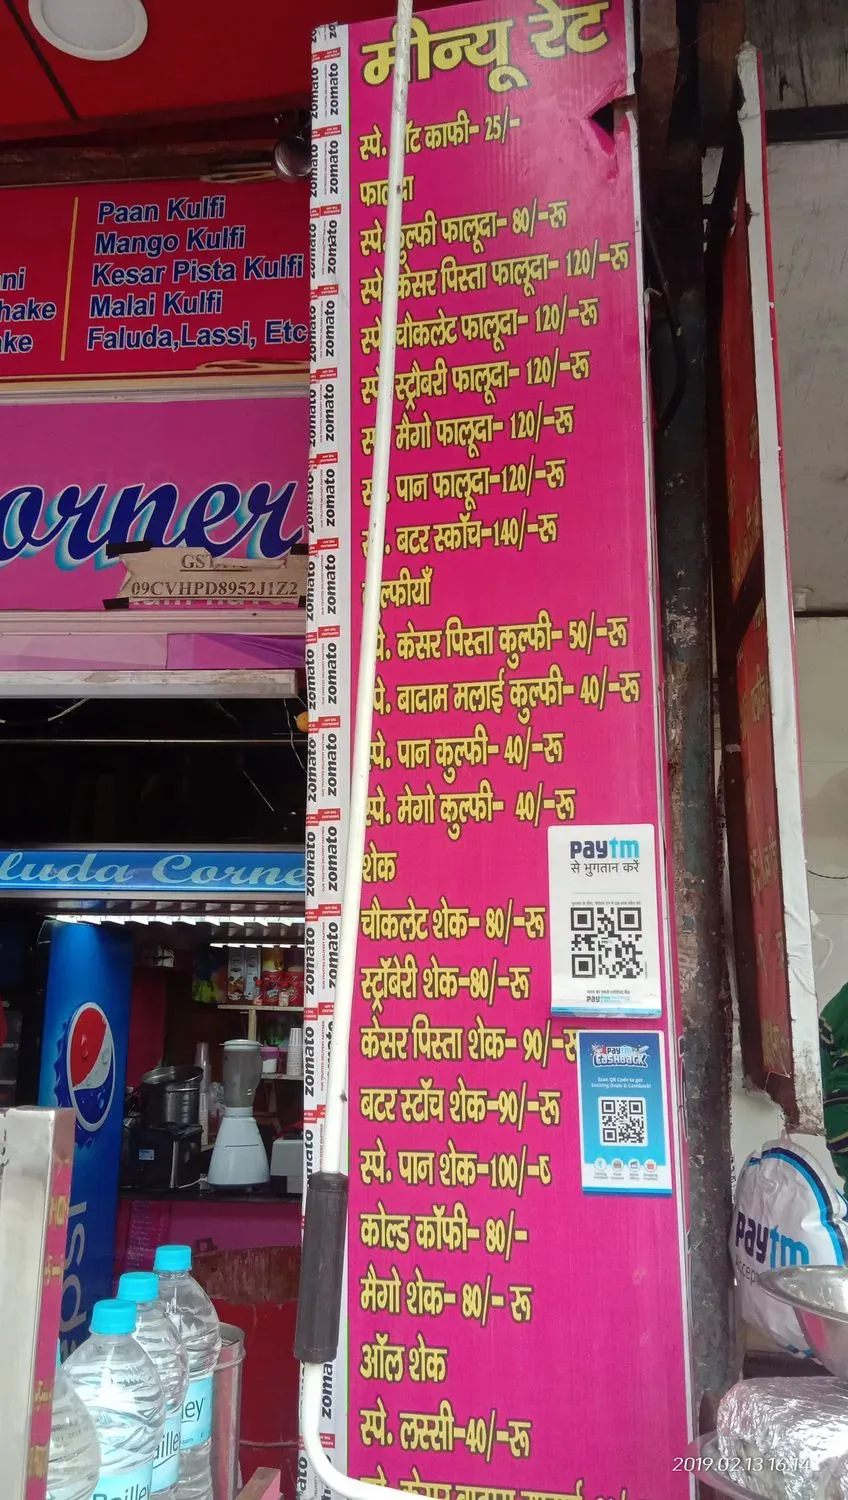 मीन्यू रेट
स्पे. काफी- 25/-
फालूदा
स्पे. कुल्फी फालूदा- 80/-रू
स्पे. केसर पिस्ता फालूदा- 120/-रू
स्पे. चौकलेट फालूदा- 120/-रू
स्पे. स्ट्रौबरी फालूदा- 120/-रू
मैगो फालूदा- 120/-रू
पान फालूदा-120/-रू
बटर स्कॉच-140/-रू
कुल्फीयाँ
स्पे. केसर पिस्ता कुल्फी- 50/-रू
स्पे. बादाम मलाई कुल्फी- 40/-रू
स्पे. पान कुल्फी- 40/-रू
स्पे. मेगो कुल्फी- 40/-रू
शेक
चौकलेट शेक- 80/-रू
स्ट्रॉबेरी शेक-80/-रू
केसर पिस्ता शेक- 90/-रू
बटर स्टॉच शेक-90/-रू
स्पे. पान शेक-100/-
कोल्ड कॉफी- 80/-
मैगो शेक- 80/- रू
ऑल शेक
स्पे. लस्सी-40/-रू
zomato
Paan Kulfi
Mango Kulfi
Kesar Pista Kulfi
Malai Kulfi
Faluda,Lassi, Etc
orner
09CVHPD8952J1Z2
luda Corne
paytm
से भुगतान करें
paytm
paytm
CASHBACK
Scan QR Code to get
Exciting Deals & Cashback!
paytm
Accept
psi
Bailley
2019.02.13 16:14